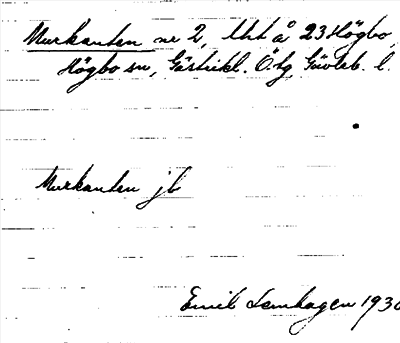 Murkanten nr 2, Utt å 23 Högbo,
Högbo sn, Gästrikl. Ö. tg Gävleb. l.
Murkanten jb
Emil Lenhagen 1930